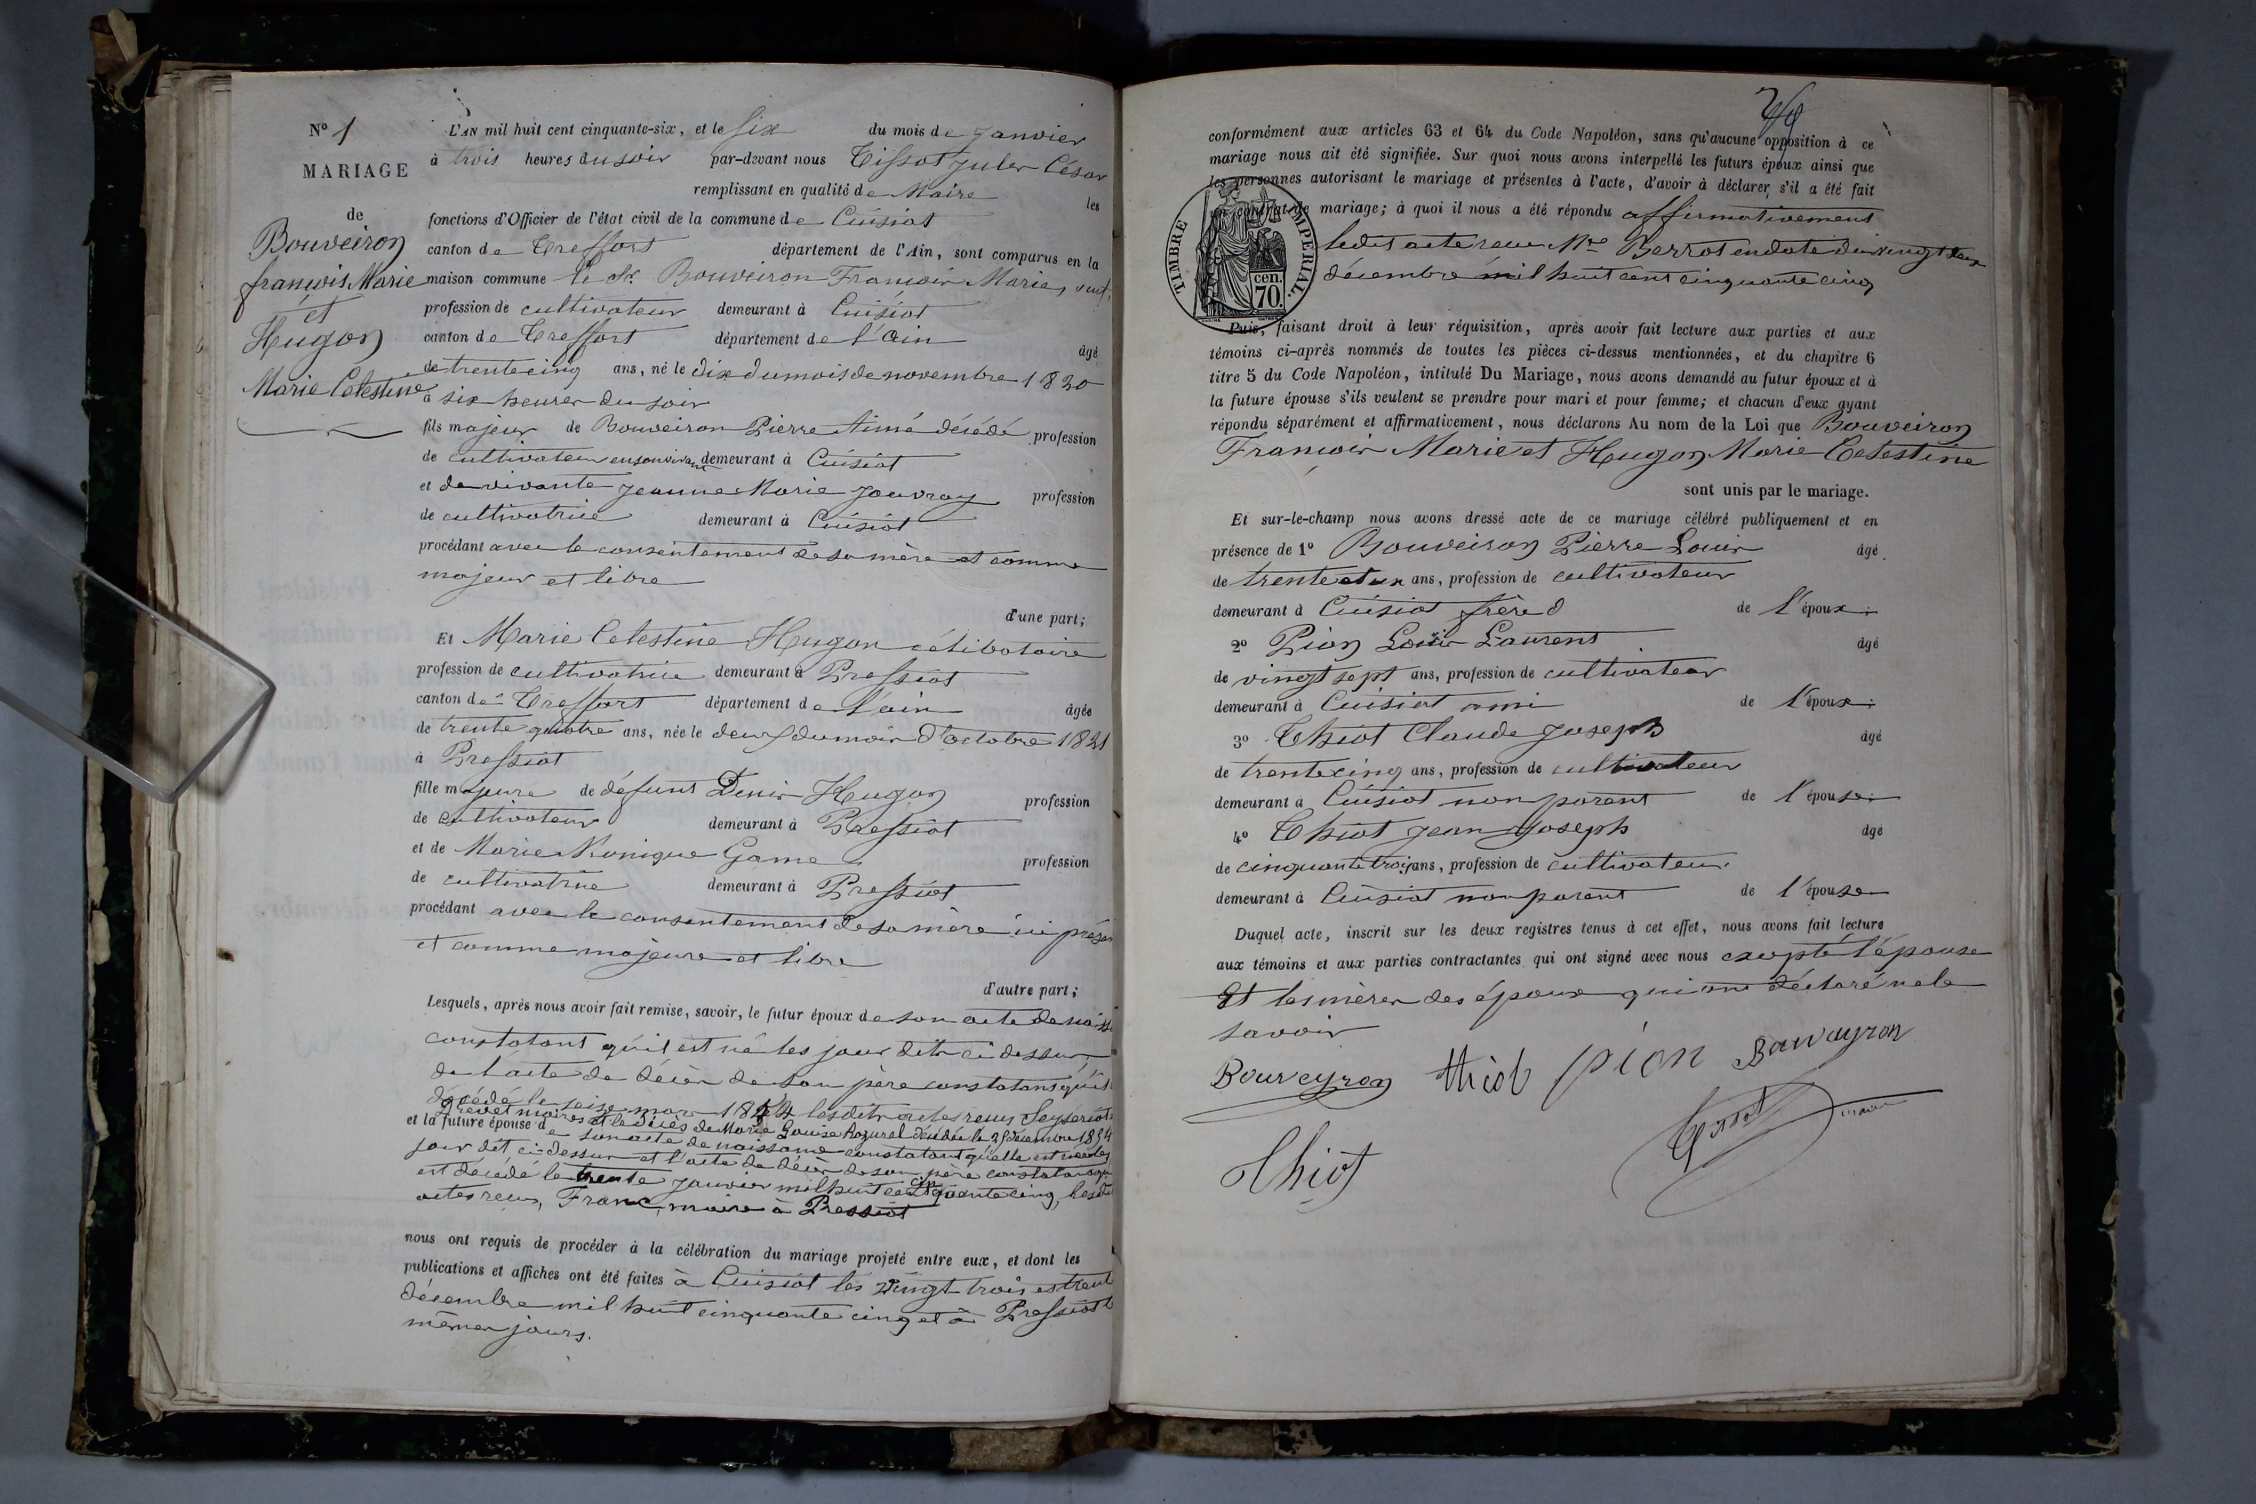 N° 1
MARIAGE
de
Bouveiron
françois Marie
et
Hugon
Marie Celestine
L'AN mil huit cent cinquante-six, et le six du mois de Janvier
à trois heures du soir par-devant nous Tissot Jules César
remplissant en qualité de Maire les
fonctions d'Officier de l'état civil de la commune de Cuisiat
canton de Treffort département de l'Ain, sont comparus en la
maison commune le Sr. Bouveiron François Marie, veuf,
profession de cultivateur demeurant à Cuisiat
canton de Treffort département de l'ain âgé
de trente cinq ans, né le dix du mois de novembre 1820
à six heures du soir
fils majeur de Bouveiron Pierre Aimé décédé profession
de cultivateur en son vivant demeurant à Cuisiat
et de vivante Jeanne Marie Jouvray profession
de cultivatrice demeurant à Cuisiat
procédant avec le consentement de sa mère et comme
majeur et libre
d'une part;
Et Marie Celestine Hugon célibataire
profession de cultivatrice demeurant à Pressiat
canton de Treffort département de l'ain âgée
de trente quatre ans, née le deux du mois d'octobre 1821
à Pressiat
fille majeure de défunt Denis Hugon profession
de cultivateur demeurant à Pressiat
et de Marie Monique Game profession
de cultivatrice demeurant à Pressiat
procédant avec le consentement de sa mère ici présen
et comme majeure et libre
d'autre part;
Lesquels, après nous avoir fait remise, savoir, le futur époux de son acte de naiss
constatant qu'il est né les jour dits ci dessus,
de l'acte de décès de son père constatant qu'il
décédé le seize mars 1844 lesdits actes reçus Seyseriat
Grevet maires et le décès de Marie Louise décédée le 25 décembre 1854
et la future épouse de son acte de naissance constatant qu'elle est née les
jour dit ci dessus et l'acte de décès de son père constatant qu
est décédé le trente janvier mil huit cent cinquante cinq, lesdits
actes reçus, Franc, maire à Pressiat
nous ont requis de procéder à la célébration du mariage projeté entre eux, et dont les
publications et affiches ont été faites à Cuisiat les vingt trois et trent
décembre mil huit cinquante cinq et à Pressiat l
mêmes jours.
conformément aux articles 63 et 64 du Code Napoléon, sans qu'aucune opposition à ce
mariage nous ait été signifiée. Sur quoi nous avons interpellé les futurs époux ainsi que
les personnes autorisant le mariage et présentes à l'acte, d'avoir à déclarer s'il a été fait
un contrat de mariage; à quoi il nous a été répondu affirmativement
ledit acte reçu Mre Berrot en date du vingt deux
décembre mil huit cent cinquante cinq
TIMBRE IMPERIAL.
cen.
70.
Puis, faisant droit à leur réquisition, après avoir fait lecture aux parties et aux
témoins ci-après nommés de toutes les pièces ci-dessus mentionnées, et du chapitre 6
titre 5 du Code Napoléon, intitulé Du Mariage, nous avons demandé au futur époux et à
la future épouse s'ils veulent se prendre pour mari et pour femme; et chacun d'eux ayant
répondu séparément et affirmativement, nous déclarons Au nom de la Loi que Bouveiron
François Marie et Hugon Marie Celestine
sont unis par le mariage.
Et sur-le-champ nous avons dressé acte de ce mariage célébré publiquement et en
présence de 1° Bouveiron Pierre Louis âgé
de trente et un ans, profession de cultivateur
demeurant à Cuisiat frère de l'époux
2° Pion Louis Laurent âgé
de vingt sept ans, profession de cultivateur
demeurant à Cuisiat ami de l'époux
3° Thiot Claude Joseph âgé
de trente cinq ans, profession de cultivateur
demeurant à Cuisiat non parent de l'épouse
4° Thiot Jean Joseph âgé
de cinquante trois ans, profession de cultivateur
demeurant à Cuisiat non parent de l'épouse
Duquel acte, inscrit sur les deux registres tenus à cet effet, nous avons fait lecture
aux témoins et aux parties contractantes qui ont signé avec nous excepté l'épouse
Et les mères des époux qui ont déclaré ne le
savoir
Bouveyron thiot pion Bouvayron
Tissot maire
Thiot